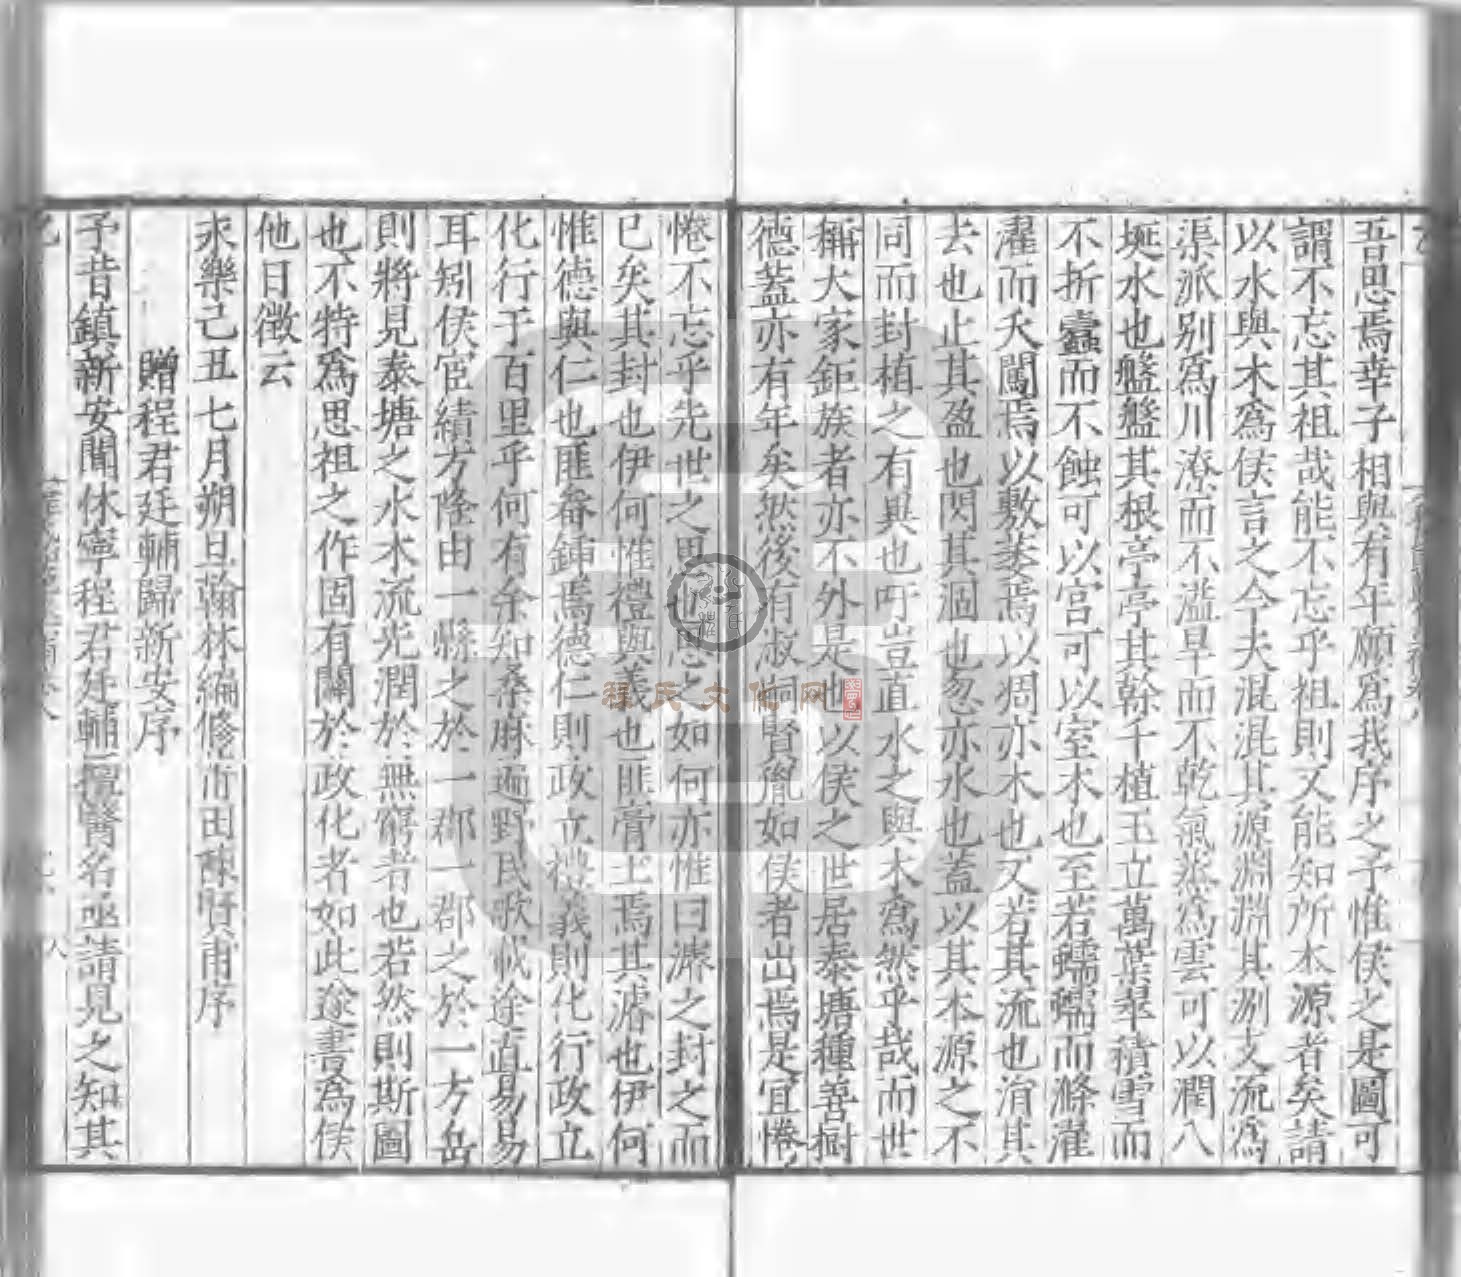 吾思焉幸子相與有年願爲我序之予惟侯之是圖可
謂不忘其祖哉能不忘乎祖則又能知所本源者矣請
以水與木爲侯言之今夫混混其源淵淵其洌支流爲
渠派别爲川潦而不溢旱而不乾氣蒸爲雲可以潤八
埏水也盤盤其根亭亭其榦千植玉立萬葉翠積雪而
不折蠹而不蝕可以宫可以室木也至若蠕蠕而滌濯
濯而夭閼焉以敷萎焉以凋亦木也又若其流也涓其
去也止其盈也閃其涸也忽亦水也蓋以其本源之不
同而封植之有異也吁豈直水之與木爲然乎哉而世
稱大家鉅族者亦不外是也以侯之世居泰塘種善樹
德蓋亦有年矣然後有淑嗣賢胤如侯者出焉是宜惓
惓不忘乎先世之思也思之如何亦惟曰濬之封之而
已矣其封也伊何惟禮與義也匪膏土焉其濬也伊何
惟德與仁也匪畚鍤焉德仁則政立禮義則化行政立
化行于百里乎何有余知桑麻遍野民歌載途直易易
耳矧侯宦績方隆由一縣之於一郡一郡之於一方岳
則將見泰塘之水木流光潤於無窮者也若然則斯圖
也不特爲思祖之作固有關於政化者如此遂書爲侯
他日徵云
永樂己丑七月朔旦翰林編修莆田陳賢甫序
贈程君廷輔歸新安序
予昔鎮新安聞休寧程君廷輔擅醫名亟請見之知其
程氏文化网